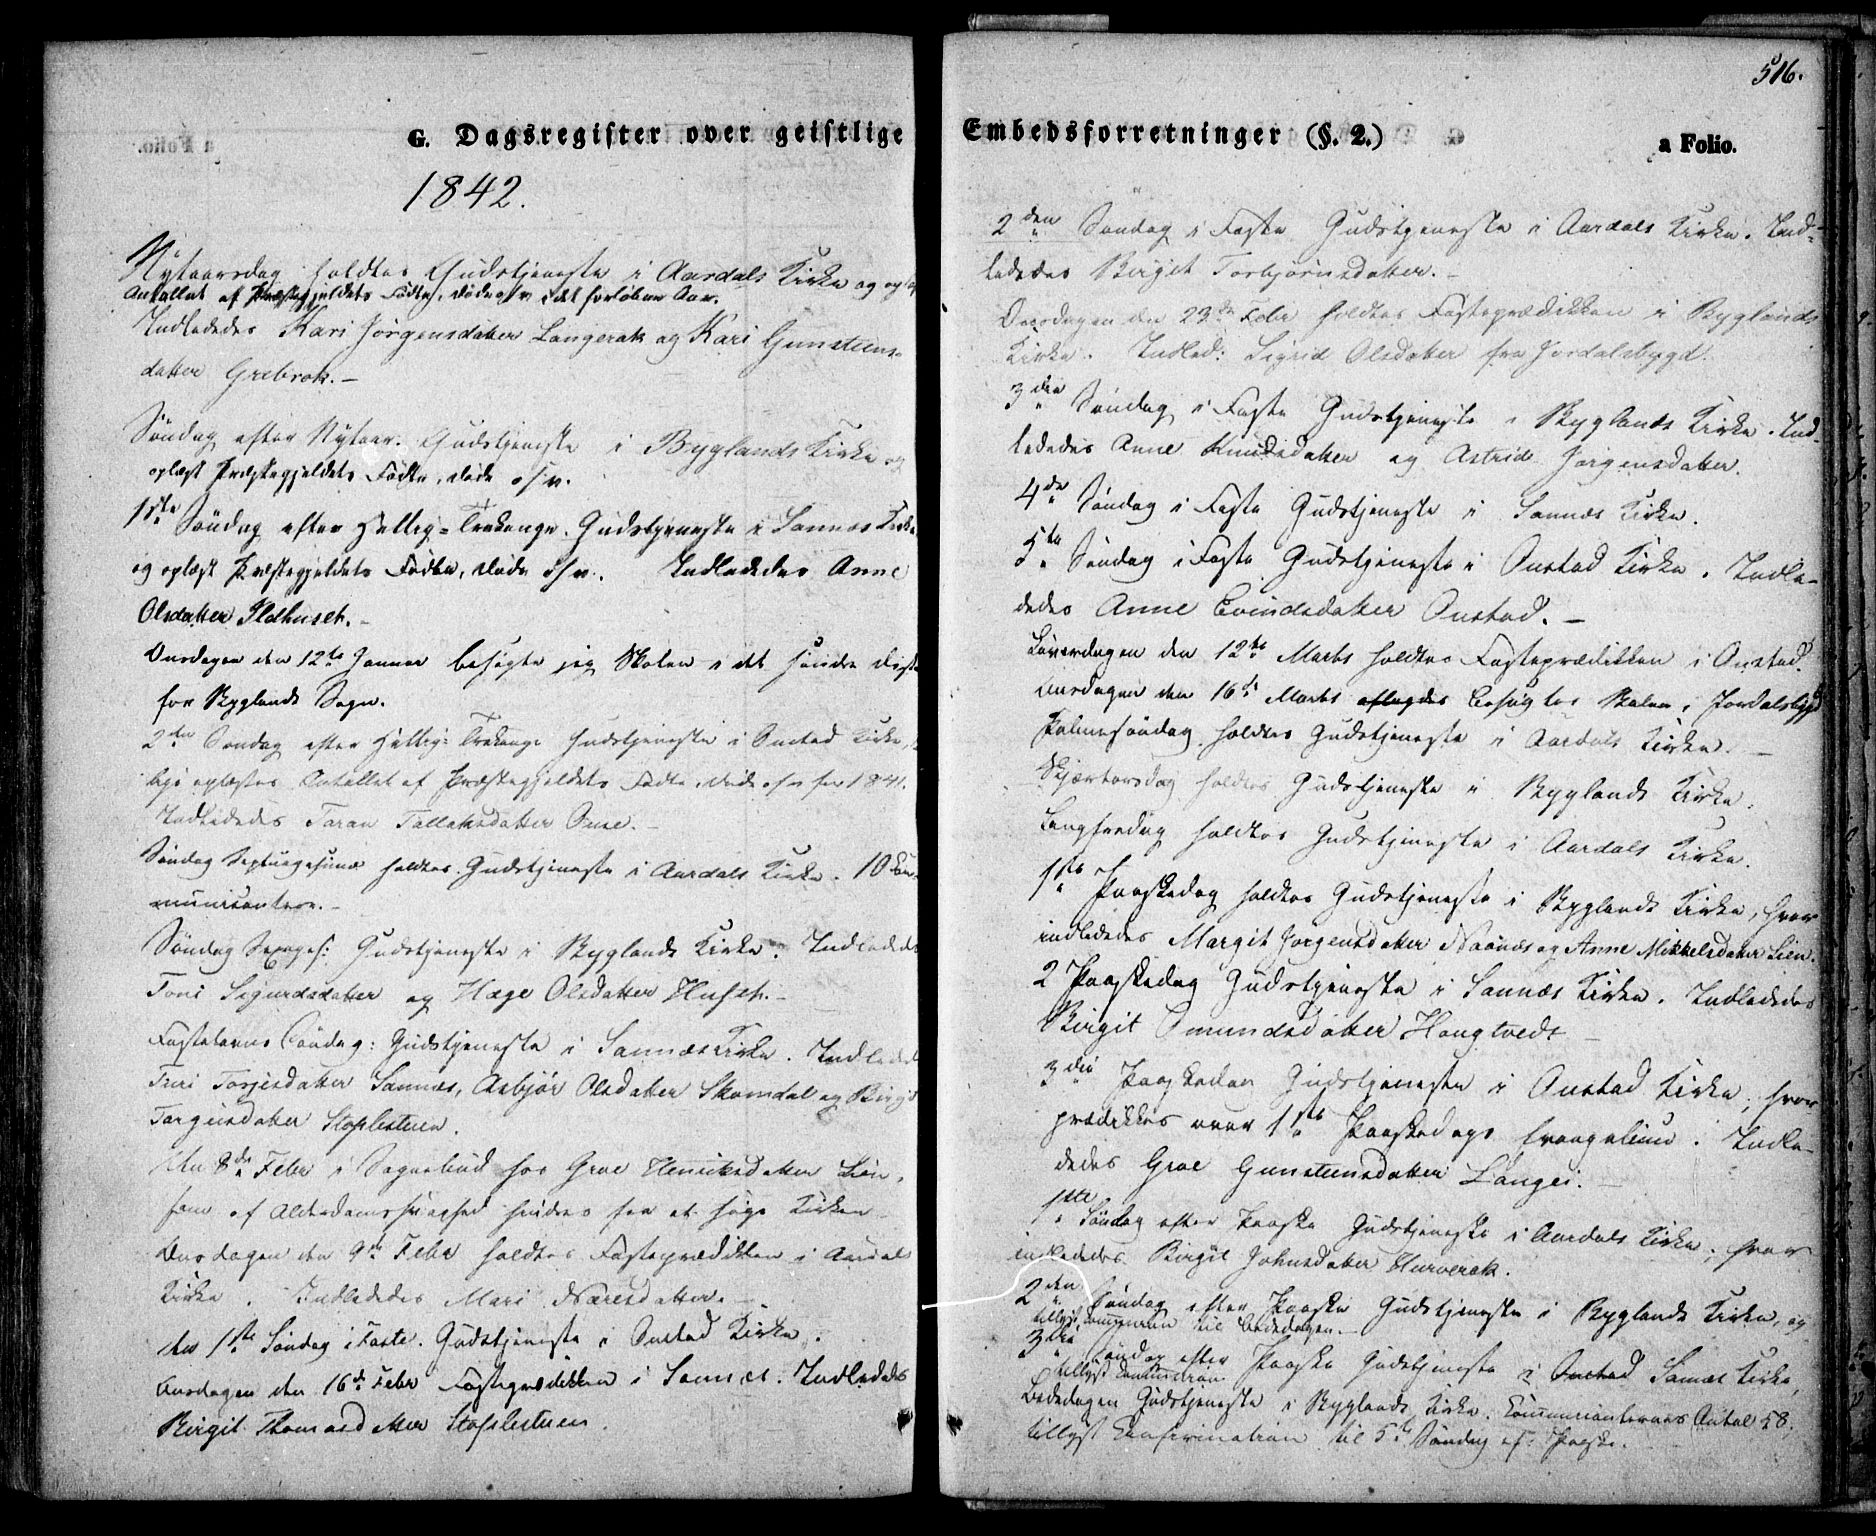 G. Dagsregister over geistlige
1842.
Nytaarsdag holdtes Gudstjeneste i Aardals Kirke og
Antallet af Præstegjeldets Fødte, døde osv i det forløbne Aar.
Indledes Kari Jørgensdatter Langerak og Kari Gunsteins-
datter Grebrok.-
Søndag efter Nytaar. Gudstjeneste i Byglands Kirke og
oplæst Præstegjeldets Fødte, døde osv.
1ste Søndag efter Hellig-Trekonge. Gudstjeneste i Sannæs Kirke
og oplæst Præstegjeldets Fødte, døde osv. Indledes Anne
Olsdatter Ildhuset.-
Onsdagen den 12te Januar besøgte jeg Skolen i det søndre
for Byglands Sogn.
2den Søndag efter Hellig-Trekonge Gudstjeneste i Austad Kirke,
oplæstes Antallet af Præstegjeldets Fødte, døde osv for 1841.
Indledes Taran Tallaksdatter Ouse.-
Søndag Septuagesima holdtes Gudstjeneste i Aardals Kirke. 10 Com-
municantere.-
Søndag Sexages: Gudstjeneste i Byglands Kirke. Indledes
Toni Sigurdsdatter og Hæge Olsdatter Huset.-
Fastelavns Søndag: Gudstjeneste i Sannæs Kirke. Indledes
Turi Torjesdatter Sannæs, Asbjør Olsdatter Skomdal og Birgit
Targiusdatter Stoflestuen.
Den 8de Febr i Sognebud hos Groe Henriksdatter Lien,
som af Alderdomssvaghed hindres fra at søge Kirken
Onsdagen den 9de Febr holdtes Fasteprædikken i Aardal
Kirke. Indledes Mari Næresdatter.-
den 1ste Søndag i Faste. Gudstjeneste i Austad Kirke.
Onsdagen den 16de Febr Fasteprædikken i Sannæs. Indledes
Birgit Thomasdatter Stoflestuen.
516.
Embedsforretninger (§. 2.)
a Folio.
2den Søndag i Faste Gudstjeneste i Aardals Kirke. Ind-
ledes Birgit Torbjørnsdatter.-
Onsdagen den 23de Febr holdtes Fasteprædikken i Byglands
Kirke. Indled: Sigrid Olsdatter fra Jordalsbygd.
3die Søndag i Faste Gudstjeneste i Byglands Kirke. Ind-
ledes Anne Knudsdatter og Astrid Jørgensdatter.
4de Søndag i Faste Gudstjeneste i Sannæs Kirke.
5te Søndag i Faste Gudstjeneste i Austad Kirke. Indle-
dedes Anne Evindsdatter Austad.-
Løverdagen den 12te Marts holdtes Fasteprædikken i Austad.
Onsdagen den 16de Marts aflagdes besøgtes Skolen i Jordalsbygd
Palmesøndag holdtes Gudstjeneste i Aardals Kirke.-
Skjærtorsdag holdtes Gudstjeneste i Byglands Kirke.
Langfredag holdtes Gudstjeneste i Aardals Kirke.
1ste Paaskedag holdtes Gudstjeneste i Byglands Kirke, hvor
indledes Margit Jørgensdatter Næsnæs og Anne Mikkelsdatter Lien.
2 Paaskedag Gudstjeneste i Sannæs Kirke. Indledes
Birgit Omundsdatter Haugtvedt
3die Paaskedag Gudstjeneste i Austad Kirke, hvor
prædikkes over 1ste Paaskedags Evangelium. Indle-
dedes Groe Gunsteinsdatter Langei.-
1ste Søndag efter Paaske Gudstjeneste i Aardals Kirke, hvor
indledes Birgit Johnsdatter Hurverak.
2den Søndag efter Paaske Gudstjeneste i Byglands Kirke, og
tillyst Communion til Bededagen.-
3die Søndag efter Paaske Gudstjeneste i Austad Sannæs Kirke,
tillyst Communion
Bededagen Gudstjeneste i Byglands Kirke. Communicanternes Antal 58.
tillyst Confirmation til 5te Søndag ef: Paaske.